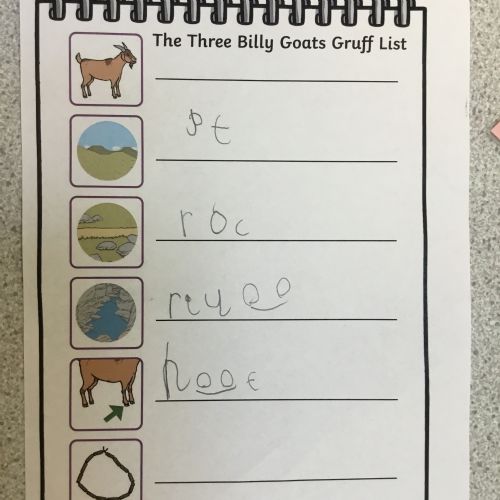 The Three Billy Goats Gruff List
pt
roc
riyoo
hoot